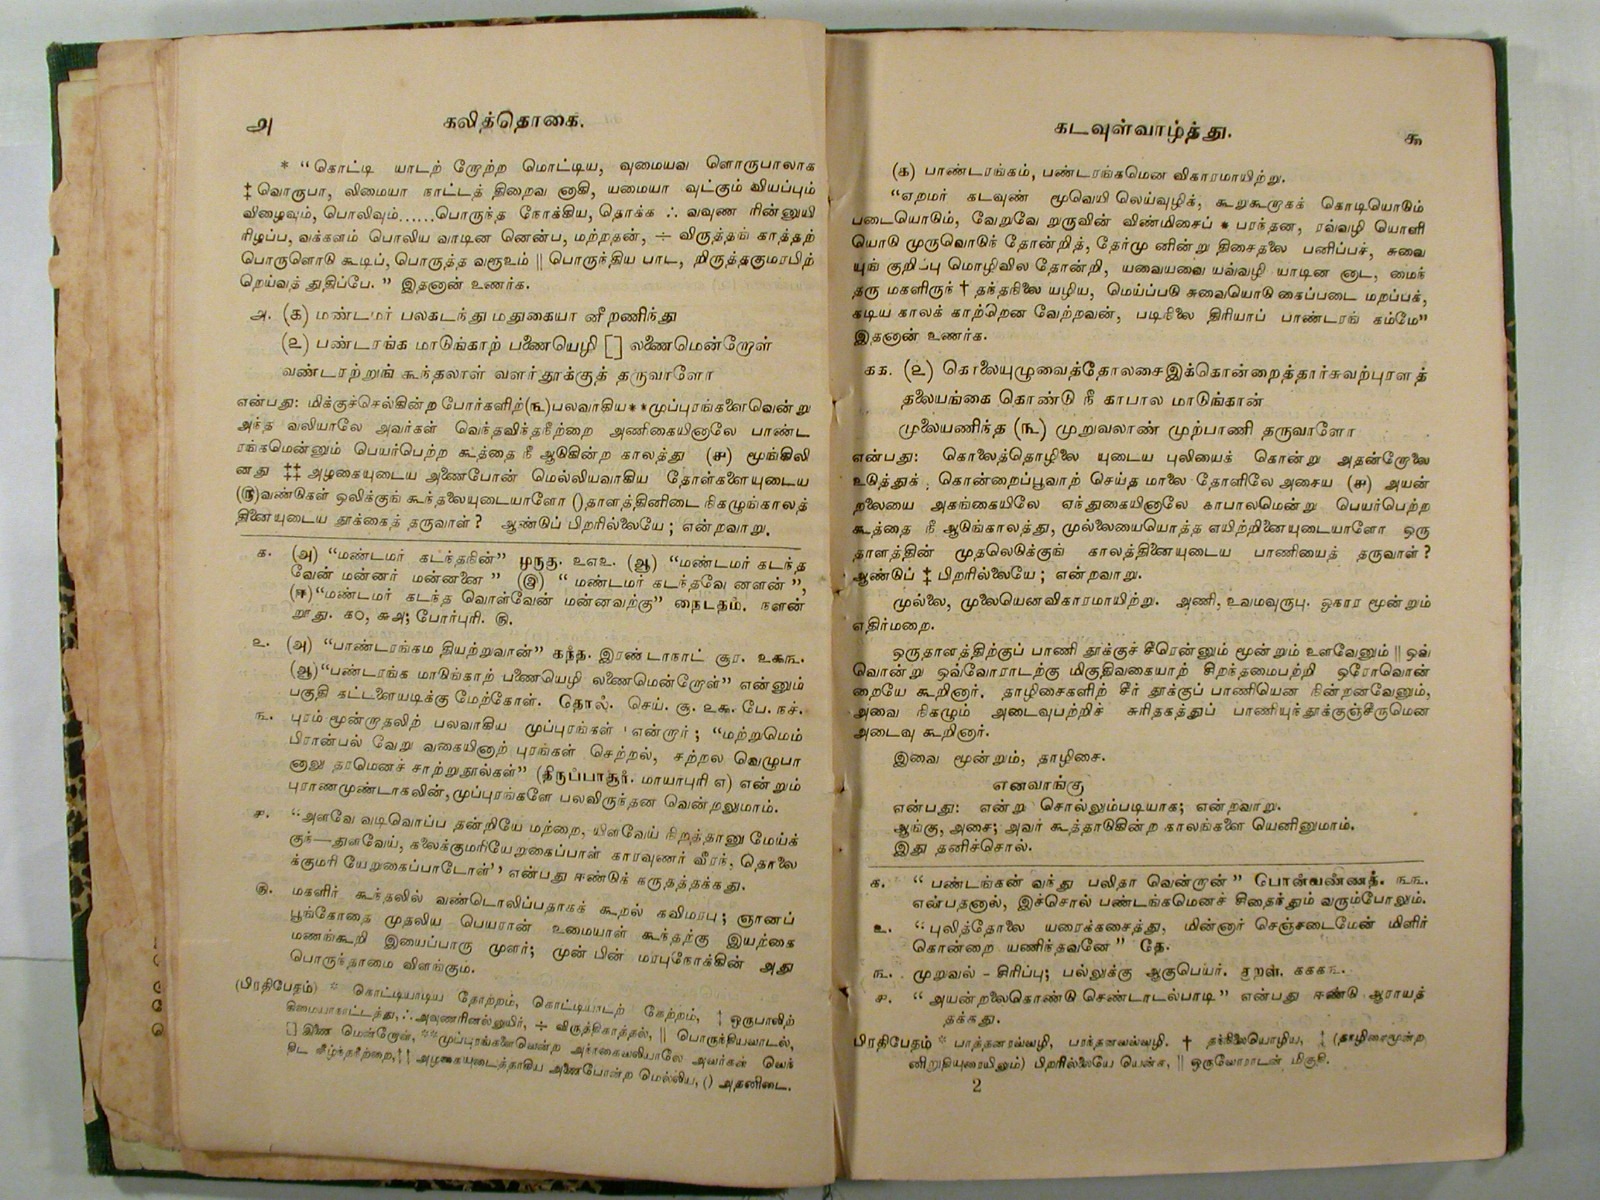 அ
கலித்தொகை.
* “கொட்டி யாடற் றோற்ற மொட்டிய, வுமையவ ளொருபாலாக
‡ வொருபா, லிமையா நாட்டத் திறைவ னாகி, யமையா வுட்கும் வியப்பும்
விழைவும், பொலிவும்......பொருந்த நோக்கிய, தொக்க ∴ வவுண ரின்னுயி
ரிழப்ப, வக்களம் பொலிய வாடின னென்ப, மற்றதன், ÷ விருத்தங் காத்தற்
பொருளொடு கூடிப், பொருத்த வரூஉம் || பொருந்திய பாட, றிருத்தகுமரபிற்
றெய்வத் துதிப்பே.” இதனான் உணர்க.
அ. (க) மண்டமர் பலகடந்து மதுகையா னீறணிந்து
(உ) பண்டரங்க மாடுங்காற் பணையெழி [] லணைமென்றோள்
வண்டரற்றுங் கூந்தலாள் வளர்தூக்குத் தருவாளோ
என்பது: மிக்குச்செல்கின்ற போர்களிற்(ங)பலவாகிய**முப்புரங்களைவென்று
அந்த வலியாலே அவர்கள் வெந்தவிந்தநீற்றை அணிகையினாலே பாண்ட
ரங்கமென்னும் பெயர்பெற்ற கூத்தை நீ ஆடுகின்ற காலத்து (ச) மூங்கிலி
னது ‡‡ அழகையுடைய அணைபோன் மெல்லியவாகிய தோள்களையுடைய
(ரு)வண்டுகள் ஒலிக்குங் கூந்தலையுடையாளோ ()தாளத்தினிடை நிகழுங்காலத்
தினையுடைய தூக்கைத் தருவாள்? ஆண்டுப் பிறரில்லையே; என்றவாறு.
க. (அ) “மண்டமர் கடந்தநின்” முருகு. உஎஉ. (ஆ) “மண்டமர் கடந்த
வேன் மன்னர் மன்னனை” (இ) “மண்டமர் கடந்தவே னளன்”,
(ஈ)“மண்டமர் கடந்த வொள்வேன் மன்னவற்கு” நைடதம். நளன்
றூது. க0, சுஅ; போர்புரி. ரு.
உ. (அ) “பாண்டரங்கம தியற்றுவான்” கந்த. இரண்டாநாட் சூர. உகூங.
(ஆ)“பண்டரங்க மாடுங்காற் பணையெழி லணைமென்றோள்” என்னும்
பகுதி கட்டளையடிக்கு மேற்கோள். தொல். செய். சூ. உகூ. பே. நச்.
ங. புரம் மூன்றாதலிற் பலவாகிய முப்புரங்கள் என்றார்; “மற்றுமெம்
பிரான்பல் வேறு வகையினாற் புரங்கள் செற்றல், சற்றல வெழுபா
னாலு தரமெனச் சாற்றுநூல்கள்” (திருப்பாதூர். மாயாபுரி எ) என்றும்
புராணமுண்டாகலின், முப்புரங்களே பலவிருந்தன வென்றலுமாம்.
ச. “அளவே வடிவொப்ப தன்றியே மற்றை, யிளவேய் நிறத்தானு மேய்க்
குந்—துளவேய், கலைக்குமரியேறுகைப்பாள் காரவுணர் வீரந், தொலை
க்குமரி யேறுகைப்பாடோள்” என்பது ஈண்டுக் கருதத்தக்கது.
ரு. மகளிர் கூந்தலில் வண்டொலிப்பதாகக் கூறல் கவிமரபு; ஞானப்
பூங்கோதை முதலிய பெயரான் உமையாள் கூந்தற்கு இயற்கை
மணங்கூறி இயைப்பாரு முளர்; முன் பின் மரபுநோக்கின் அது
பொருந்தாமை விளங்கும்.
(பிரதிபேதம்) * கொட்டியாடிய தோற்றம், கொட்டியாடற் கேற்றம், ‡ ஒருபாலிற்
றிமையாநாட்டத்து, ∴ அவுணரினல்னுயிர், ÷ விருத்திகாத்தல், || பொருந்தியவாடல்,
[] இணை மென்றோள், **முப்புரங்களைவென்ற அக்கைவலியாலே அவர்கள் வெந்
திட வீழ்ந்தநீற்றை, ‡‡ அழகையுடைத்தாகிய அணைபோன்ற மெல்லிய, () அதனிடை.
கடவுள்வாழ்த்து.
கூ
(க) பாண்டரங்கம், பண்டரங்கமென விகாரமாயிற்று.
“ஏறமர் கடவுண் மூவெயி லெய்வுழிக், கூறுகூறாகக் கொடியொடும்
படையொடும், வேறுவே றுருவின் விண்மிசைப் * பரந்தன, ரவ்வழி யொளி
யொடு முருவொடுந் தோன்றித், தேர்மு னின்று திசைதலை பனிப்பச், சுவை
யுங் குறிப்பு மொழிவில தோன்றி, யவையவை யவ்வழி யாடின னாட, மைந்
தரு மகளிருந் † தந்தநிலை யழிய, மெய்ப்படு சுவையொடு கைப்படை மறப்பக்,
கடிய காலக் காற்றென வேற்றவன், படிநிலை திரியாப் பாண்டரங் கம்மே”
இதனான் உணர்க.
கக. (உ) கொலையுழுவைத்தோலசைஇக்கொன்றைத்தார்சுவற்புரளத்
தலையங்கை கொண்டு நீ காபால மாடுங்கான்
முலையணிந்த (ங) முறுவலாண் முற்பாணி தருவாளோ
என்பது: கொலைத்தொழிலை யுடைய புலியைக் கொன்று அதன்றோலை
உடுத்துக் கொன்றைப்பூவாற் செய்த மாலை தோளிலே அசைய (ச) அயன்
றலையை அகங்கையிலே ஏந்துகையினாலே காபாலமென்று பெயர்பெற்ற
கூத்தை நீ ஆடுங்காலத்து, முல்லையையொத்த எயிற்றினையுடையாளோ ஒரு
தாளத்தின் முதலெடுக்குங் காலத்தினையுடைய பாணியைத் தருவாள்?
ஆண்டுப் ‡ பிறரில்லையே; என்றவாறு.
முல்லை, முலையெனவிகாரமாயிற்று. அணி, உவமவுருபு. ஓகார மூன்றும்
எதிர்மறை.
ஒருதாளத்திற்குப் பாணி தூக்குச் சீரென்னும் மூன்றும் உளவேனும் || ஒவ்
வொன்று ஒவ்வோராடற்கு மிகுதிவகையாற் சிறந்தமைபற்றி ஒரோவொன்
றையே கூறினார். தாழிசைகளிற் சீர் தூக்குப் பாணியென நின்றனவேனும்,
அவை நிகழும் அடைவுபற்றிச் சுரிதகத்துப் பாணியுந்தூக்குஞ்சீருமென
அடைவு கூறினார்.
இவை மூன்றும், தாழிசை.
எனவாங்கு
என்பது: என்று சொல்லும்படியாக; என்றவாறு.
ஆங்கு, அசை; அவர் கூத்தாடுகின்ற காலங்களை யெனினுமாம்.
இது தனிச்சொல்.
க. “பண்டங்கன் வந்து பலிதா வென்றான்” பொன்வண்ணத். ஙங.
என்பதனால், இச்சொல் பண்டங்கமெனச் சிதைந்தும் வரும்போலும்.
உ. “புலித்தோலை யரைக்கசைத்து, மின்னார் செஞ்சடைமேன் மிளிர்
கொன்றை யணிந்தவனே” தே.
ங. முறுவல் - சிரிப்பு; பல்லுக்கு ஆகுபெயர். குறள். ககக௩.
ச. “அயன்றலைகொண்டு செண்டாடல்பாடி” என்பது ஈண்டு ஆராயத்
தக்கது.
பிரதிபேதம் * பாத்தனரவ்வழி, பரந்தனவவ்வழி. † தந்நிலையொழிய, ‡ (தாழிசைமூன்ற
னிறுதியுரையினும்) பிறரில்லையே யென்க, || ஒருவோராடன் மிகுதி.
2